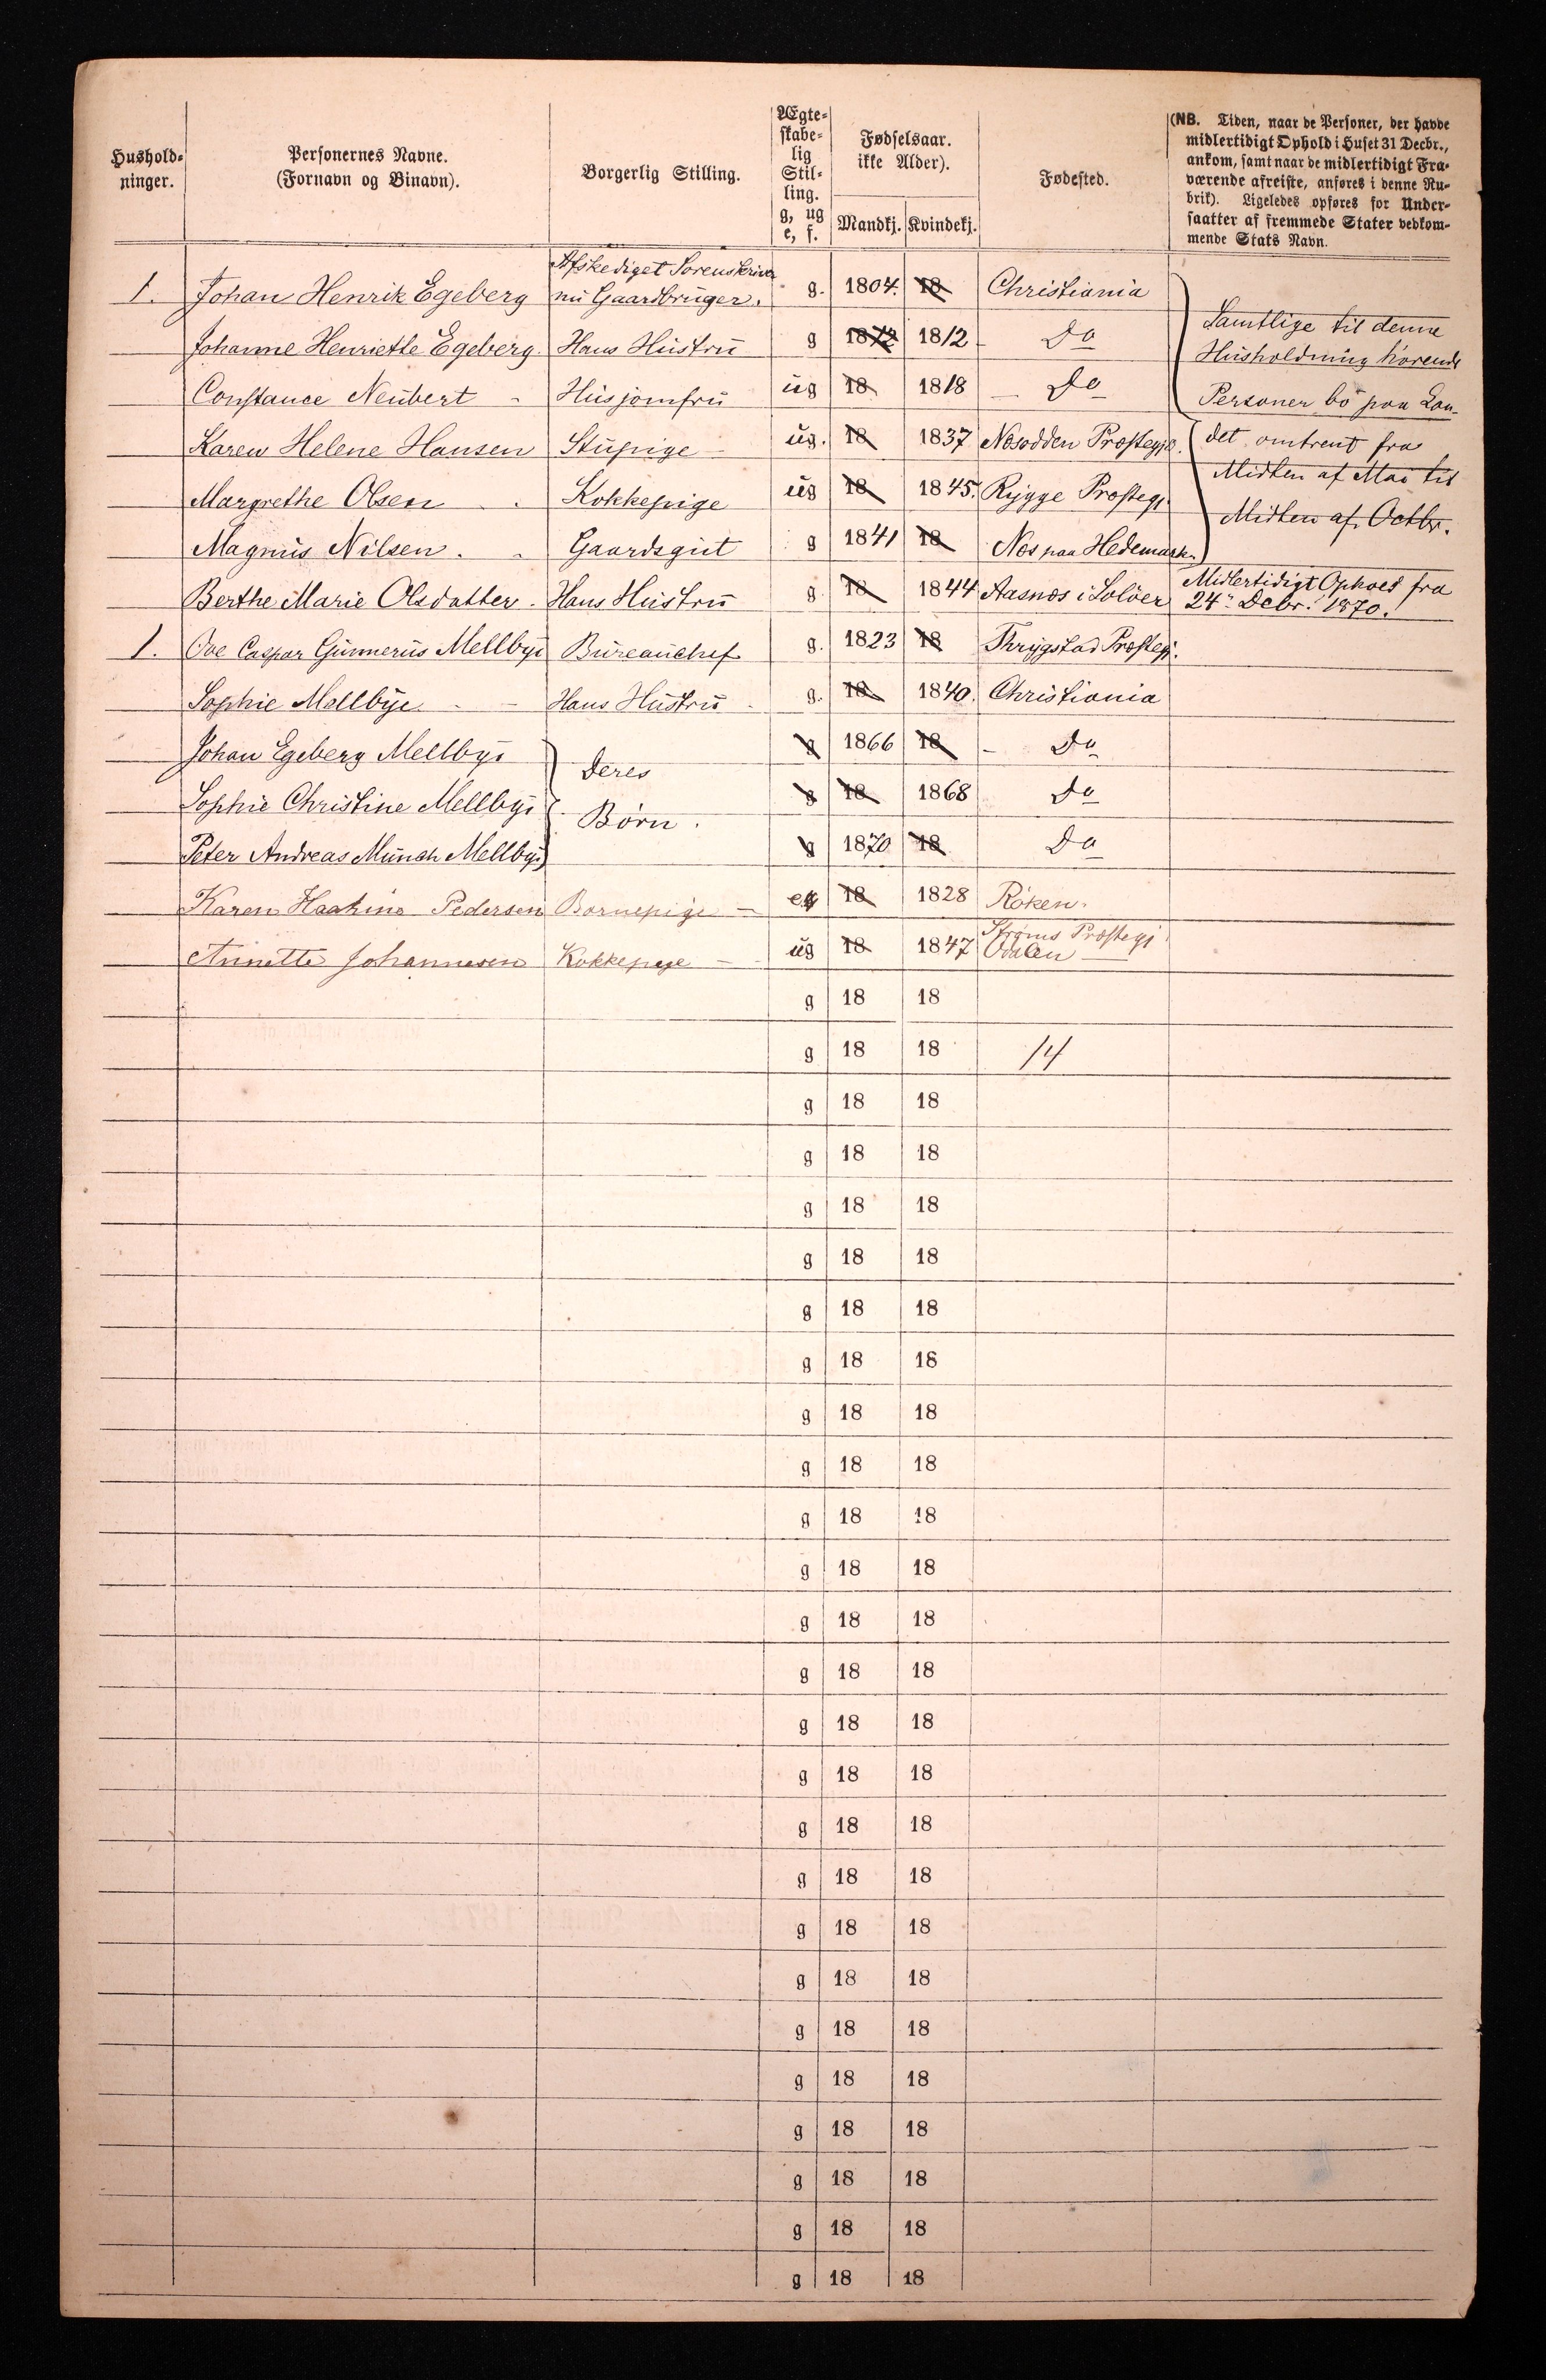 Hushold-
ninger.
Personernes Navne.
(Fornavn og Binavn).
Borgerlig Stilling.
Ægte-
skabe-
lig
Stil-
ling.
g, ug
e, f.
Fødselsaar.
ikke Alder).
Mandkj. Kvindekj.
Fødested.
(NB. Tiden, naar de Personer, der havde
midlertidigt Ophold i Huset 31 Decbr.,
ankom, samt naar de midlertidigt Fra-
værende afreiste, anføres i denne Ru-
brik). Ligeledes opføres for Under-
saatter af fremmede Stater vedkom-
mende Stats Navn.
Afskediget Sorenskriver
1. Johan Henrik Egeberg nu Gaardbruger. g. 1804. 18 Christiania
Johanne Henriette Egeberg. Hans Hustru g 1812 1812 - Do
Samtlige til denne
Husholdning hørende
Constance Neubert - Husjomfru ug 18 1818 - Do
Personer bo paa Lan-
Karen Helene Hansen Stupige - ug. 18 1837 Næsodden Præstegjd.
det omtrent fra
Margrethe Olsen . . Kokkepige ug 18 1845. Rygge Præstegj.
Midten af Mai til
Midten af Octbr.
Magnus Nilsen . - Gaardsgut g 1841 18 Næs paa Hedemark.
Berthe Marie Olsdatter. Hans Hustru g 18 1844 Aasnæs i Solöer
Midlertidigt Ophold fra
24de Debr. 1870.
1. Ove Caspar Gunnerius Mellbye Bureauchef g. 1823 18 Thrygstad Præstegj.
Sophie Mellbye - - Hans Hustru - g. 18 1840. Christiania
Johan Egeberg Mellbye g 1866 18 - Do
Deres
Sophie Christine Mellbye g 18 1868 Do
Børn.
Peter Andreas Munch Mellbye g 1870 18 Do
Karen Haakine Pedersen Bornepige - eg 18 1828 Røken.
Strøms Præstegj
Annette Johannesen Kokkepege - ug 18 1847 Odalen
g 18 18
g 18 18 14
g 18 18
g 18 18
g 18 18
g 18 18
g 18 18
g 18 18
g 18 18
g 18 18
g 18 18
g 18 18
g 18 18
g 18 18
g 18 18
g 18 18
g 18 18
g 18 18
g 18 18
g 18 18
g 18 18
g 18 18
g 18 18
g 18 18
g 18 18
g 18 18